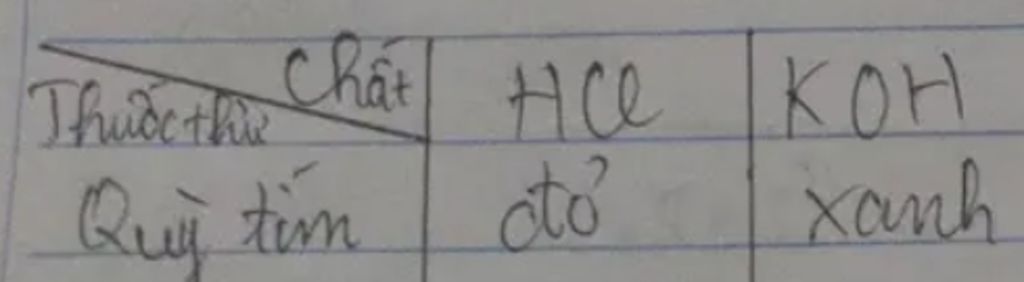 Chất HCl KOH
Thuốc thử
Quỳ tím đỏ xanh